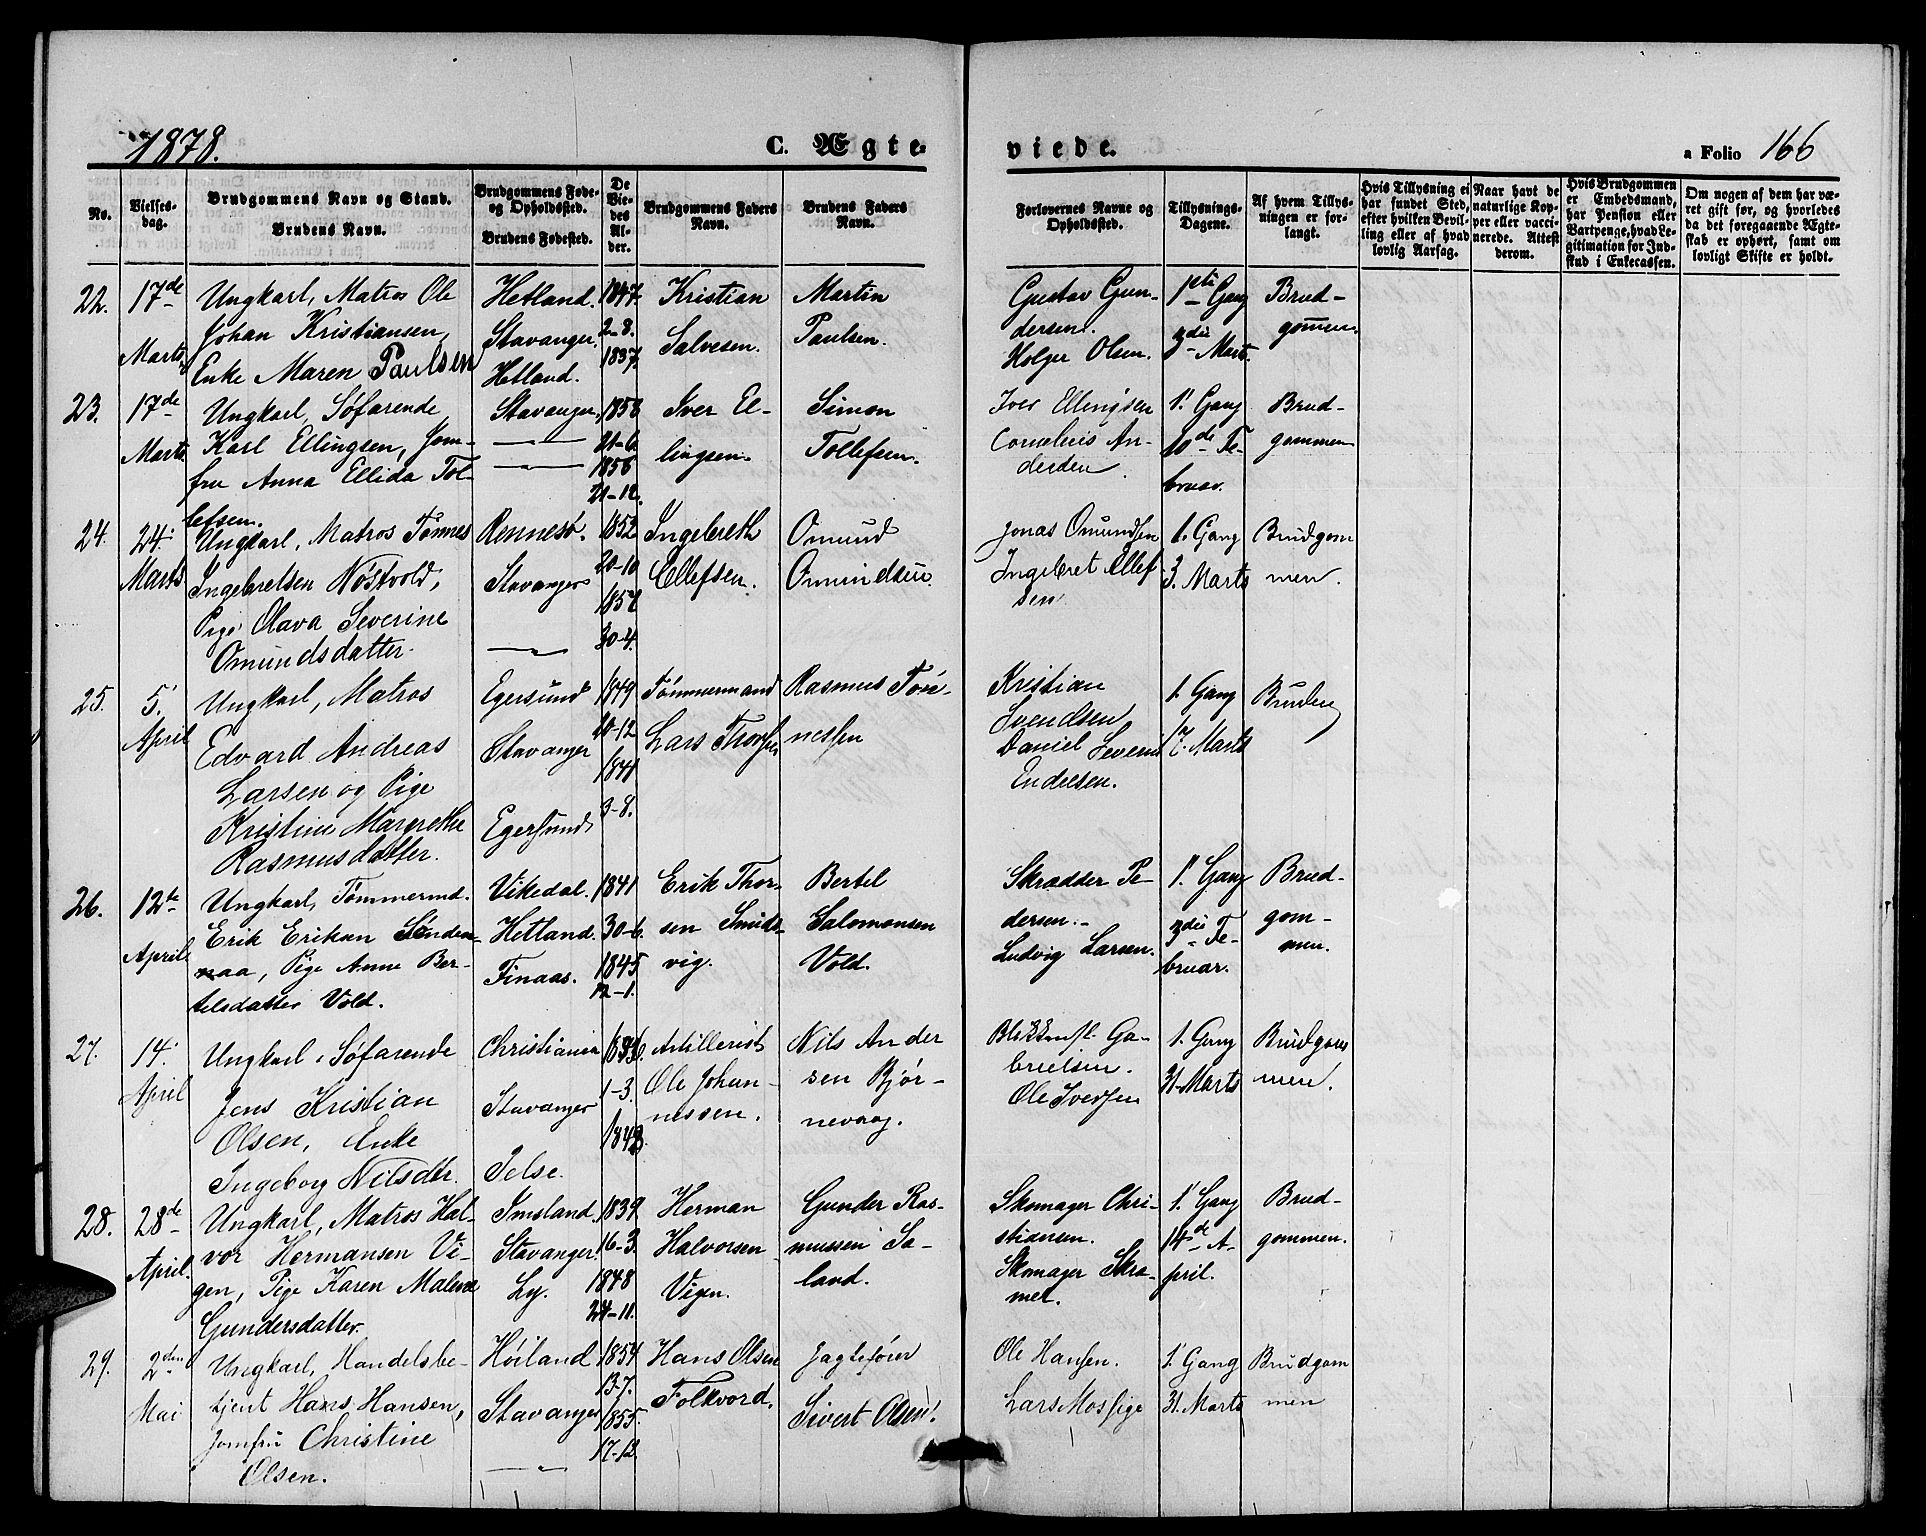 1878.
C. Ægte-
viede.
a Folio 166
No.
Vielses-
dag.
Brudgommens Navn og Stand.
Brudens Navn.
Brudgommens Føde-
og Opholdssted.
Brudens Fødested.
De
Vie-
des
Al-
der.
Brudgommens Faders
Navn.
Brudens Faders
Navn.
Forlovernes Navne og
Opholdssted.
Tillysnings-
Dagene.
Af hvem Tillys-
ningen er for-
langt.
Hvis Tillysning ei
har fundet Sted,
efter hvilken Bevil-
ling eller af hvad
lovlig Aarsag.
Naar havt de
naturlige Kop-
per eller vacci-
nerede. Attest
derom.
Hvis Brudgommen
er Embedsmand,
har Pension eller
Vartpenge, hvad Le-
gitimation for Ind-
skud i Enkecassen.
Om nogen af dem har væ-
ret gift før, og hvorledes
da det foregaaende Ægte-
skab er ophørt, samt om
lovligt Skifte er holdt.
22.
17de
Marts
Ungkarl, Matros Ole
Johan Kristiansen,
Enke Maren Paulsen
Hetland.
Stavanger.
Hetland.
1847.
2-8.
1837.
Kristian
Salvesen.
Martin
Paulsen.
Gustav Gun-
dersen.
Holger Olsen.
1ste Gang
3die Mart.
Brud-
gommen.
23.
17de
Marts.
Ungkarl, Søfarende
Karl Ellingsen, Jom-
fru Anna Ellida Tol-
lefsen.
Stavanger.
— " —
— " —
1858
21-6.
1856
21-12.
Iver El-
lingsen.
Simon
Tollefsen.
Iver Ellingsen
Cornelius An-
dersen
1' Gang
10de Fe-
bruar.
Brud-
gommen
24.
24.
Marts
Ungkarl, Matros Tønnes
Ingebretsen Nøstvold,
Pige Olava Severine
Omundsdatter.
Rennesø.
Stavanger
— " —
1852
20-10
1857
30-4.
Ingebreth
Ellefsen.
Omund
Omundsen.
Jonas Omundsen
Ingebret Ellef
sen
1. Gang
3. Marts
Brudgom
men.
25.
5.
April
Ungkarl, Matros
Edvard Andreas
Larsen og Pige
Kristine Margrethe
Rasmusdatter.
Egersund
Stavanger
Egersund
1849
20-12
1841
3-8.
Tømmermand
Lars Thorsen
Rasmus Tøn-
nessen
Kristian
Svendsen
Daniel Severin
Endresen.
1. Gang
17. Marts
Bruden
26.
12te
April
Ungkarl, Tømmermd.
Erik Eriksen Sønden-
naa, Pige Anne Ber-
telsdatter Vold.
Vikedal.
Hetland.
Finaas.
1841
30-6.
1845
12-1.
Erik Thor-
sen Smids-
vig.
Bertel
Salomonsen
Vold.
Skrædder Pe-
dersen.
Ludvig Larsen.
1' Gang
3die Fe-
bruar.
Brud-
gom-
men.
27.
14.
April
Ungkarl, Søfarende
Jens Kristian
Olsen, Enke
Ingeborg Nilsdtr.
Christiania
Stavanger
Jelse.
1-3.
Artillerist
Ole Johan-
nessen.
Nils Ander
sen Bjør-
nevaag.
Ga-
brielsen.
Ole Iversen
1. Gang
31. Marts
Brudgom
men.
28.
28de
April.
Ungkarl, Matros Hal-
vor Hermansen Vi-
gen, Pige Karen Malene
Gundersdatter.
Imsland.
Stavanger
Ly.
1839
16-3.
1848
24-11.
Herman
Halvorsen
Vigen.
Gunder Ras-
mussen Sa-
land.
Skomager Chri-
stiansen.
Skomager Skra-
mer.
1' Gang
14de A-
pril.
Brud-
gommen.
29.
2den
Mai
Ungkarl, Handelsbe-
tjent Hans Hansen,
Jomfru Christine
Olsen.
Høiland
Stavanger
— " —
1854
13-7.
1855.
17-12.
Hans Olsen
Folkvord.
Jagtefører
Sivert Olsen.
Ole Hansen.
Lars Mossige
1. Gang
31. Marts
Brudgom
men